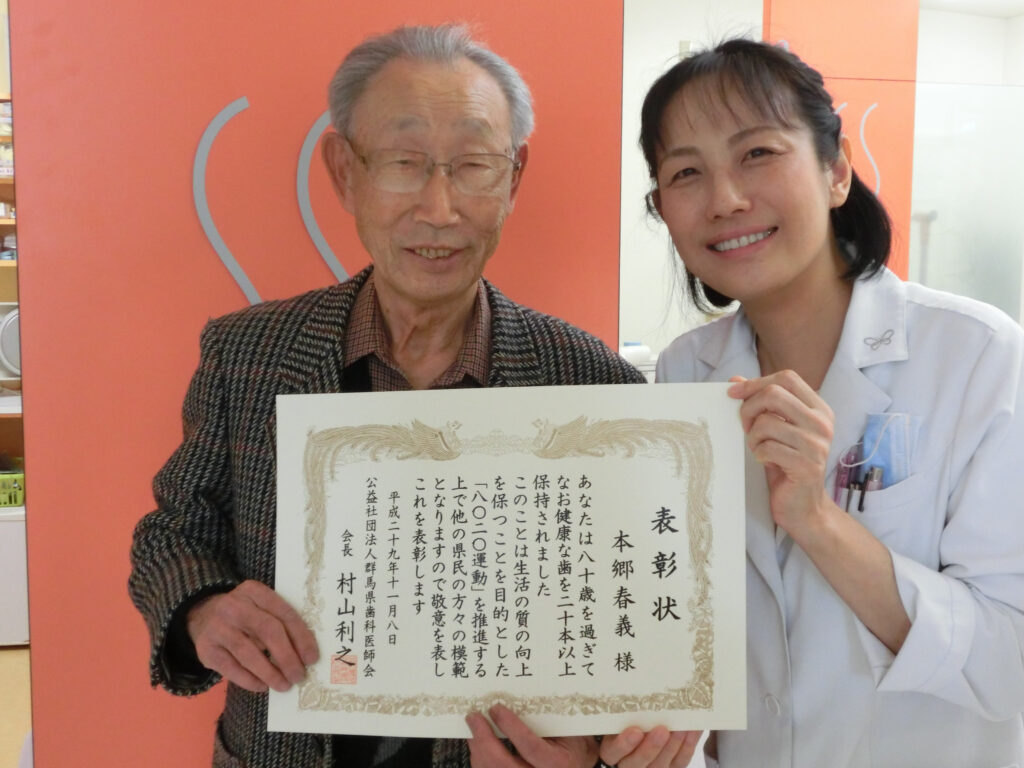 表彰状
本郷春義様
あなたは八十歳を過ぎて
なお健康な歯を二十本以上
保持されました
このことは生活の質の向上
を保つことを目的とした
「八〇二〇運動」を推進する
上で他の県民の方々の模範
となりますので敬意を表し
これを表彰します
平成二十九年十一月八日
公益社団法人群馬県歯科医師会
会長 村山利之